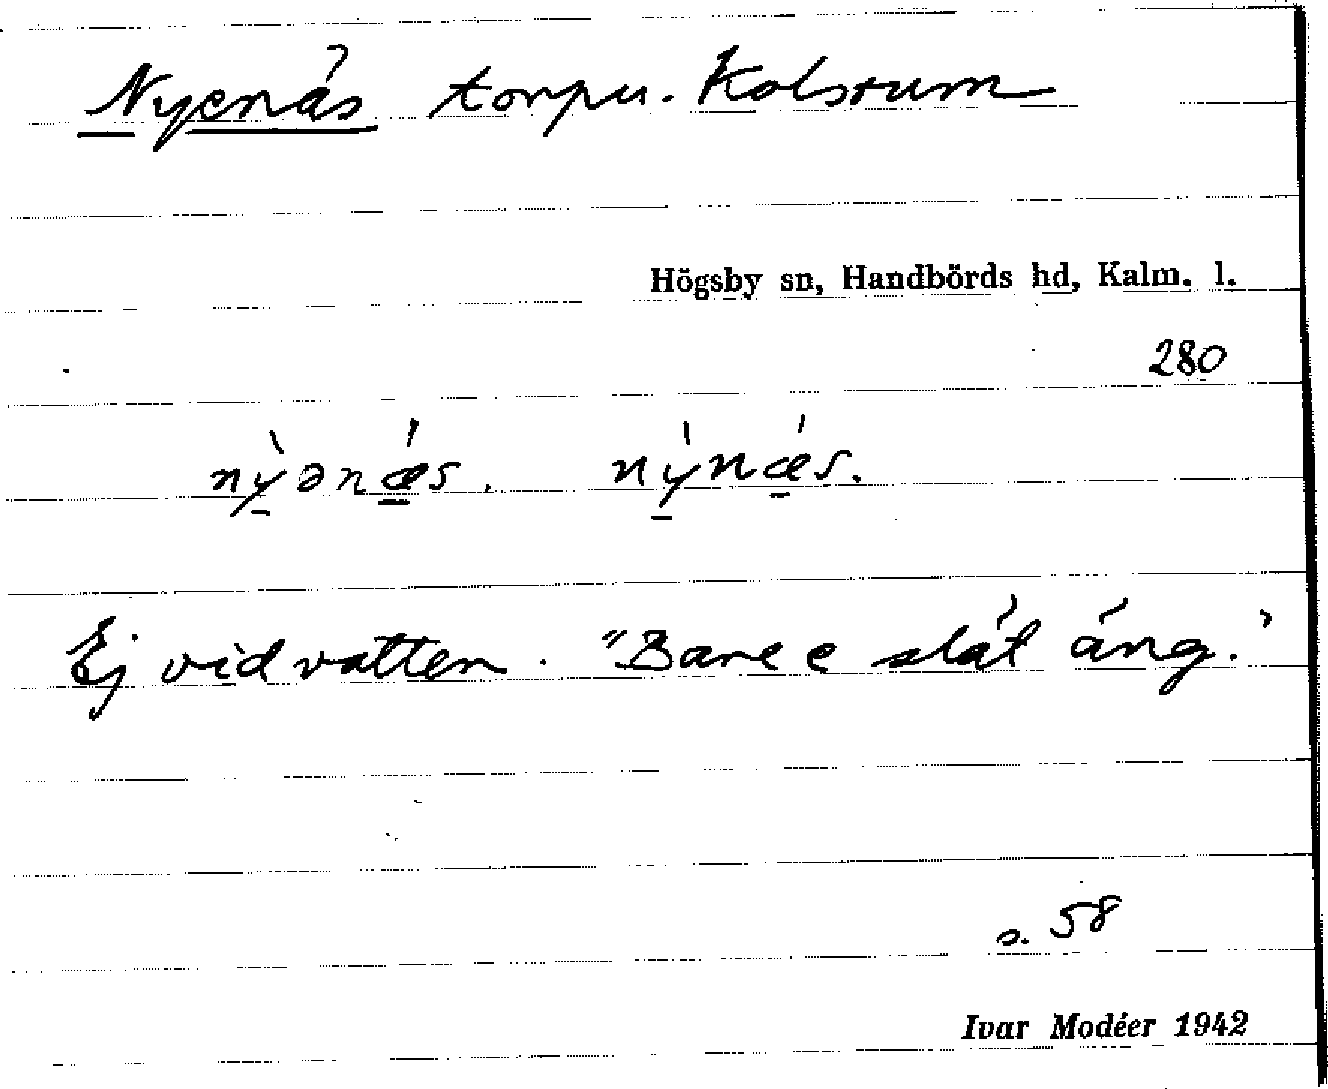 Nyenäs torpu. Kolsrum
Högsby sn, Handbörds hd, Kalm. l.
280
nỳ̠ənǽ̠s. nỳ̠nǽ̠s.
Ej vid vatten. "Bare e slät äng."
s. 58
Ivar Modéer 1942